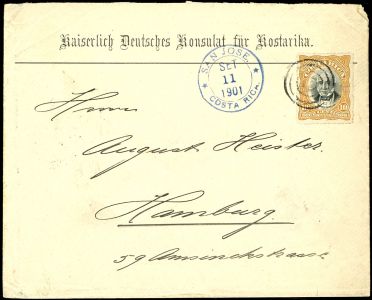 Kaiserlich Deutsches Konsulat für Kostarika.
SAN JOSE,
SET
11
1901
COSTA RICA
COSTA RICA
10
Herrn
August Heister.
Hamburg.
59 Amsinckstrasse